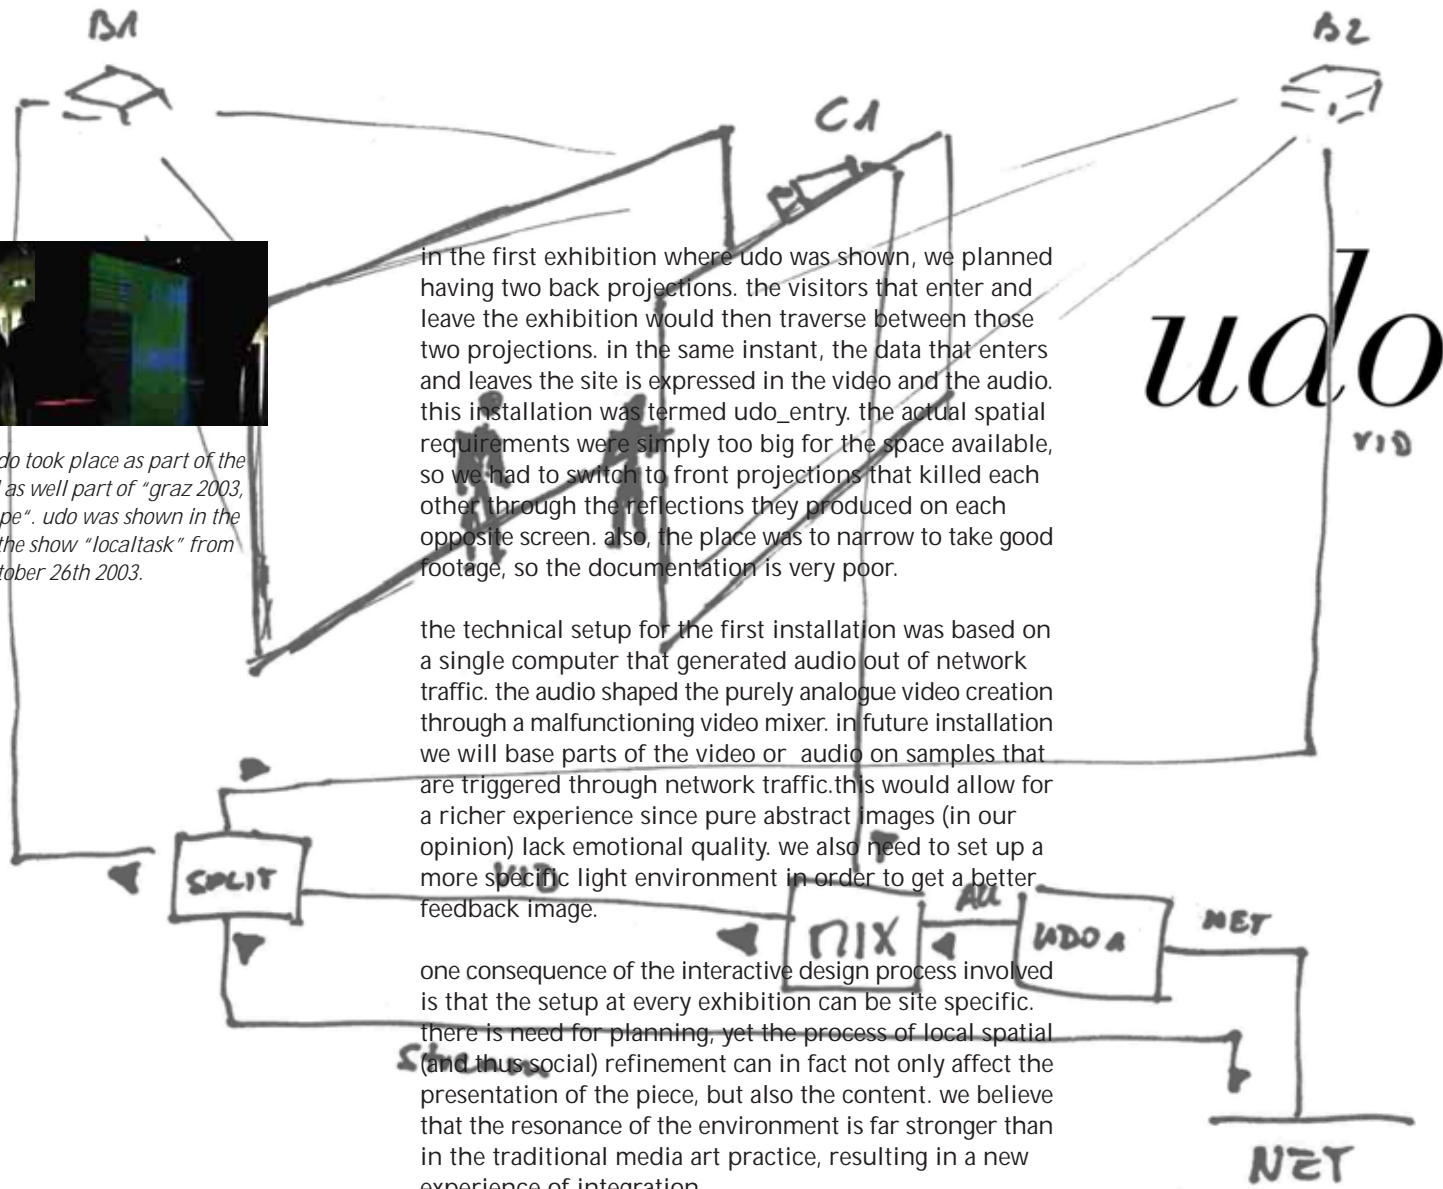 B1
B2
C1
udo
VID
do took place as part of the
as well part of "graz 2003,
pe". udo was shown in the
the show "localtask" from
tober 26th 2003.
in the first exhibition where udo was shown, we planned
having two back projections. the visitors that enter and
leave the exhibition would then traverse between those
two projections. in the same instant, the data that enters
and leaves the site is expressed in the video and the audio.
this installation was termed udo_entry. the actual spatial
requirements were simply too big for the space available,
so we had to switch to front projections that killed each
other through the reflections they produced on each
opposite screen. also, the place was to narrow to take good
footage, so the documentation is very poor.
the technical setup for the first installation was based on
a single computer that generated audio out of network
traffic. the audio shaped the purely analogue video creation
through a malfunctioning video mixer. in future installation
we will base parts of the video or audio on samples that
are triggered through network traffic.this would allow for
a richer experience since pure abstract images (in our
opinion) lack emotional quality. we also need to set up a
more specific light environment in order to get a better
feedback image.
one consequence of the interactive design process involved
is that the setup at every exhibition can be site specific.
there is need for planning, yet the process of local spatial
(and thus social) refinement can in fact not only affect the
presentation of the piece, but also the content. we believe
that the resonance of the environment is far stronger than
in the traditional media art practice, resulting in a new
experience of integration
SPLIT
VID
MIX
AU
UDO 1
NET
Stream
NET